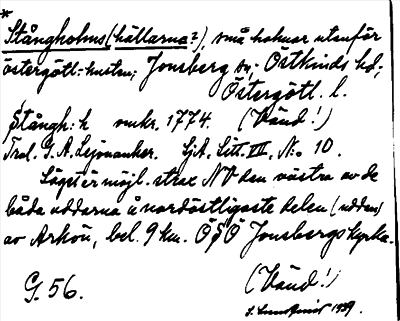 *
Stångholms (hällarna?), små holmar utanför
östergötl.-kusten; Jonsberg sn; Östkinds hd;
Östergötl. l.
Stångh:k omkr. 1774. (Vänd!)
Trol. G. A. Lejonanker. Sjk. Litt. VII, No 10.
Läget är möjl. strax NV den västra av de
båda uddarna å nordöstligaste delen (udden)
av Arkön, bel. 9 km. ÖSÖ Jonsbergs kyrka.
G. 56. (Vänd!)
1939.